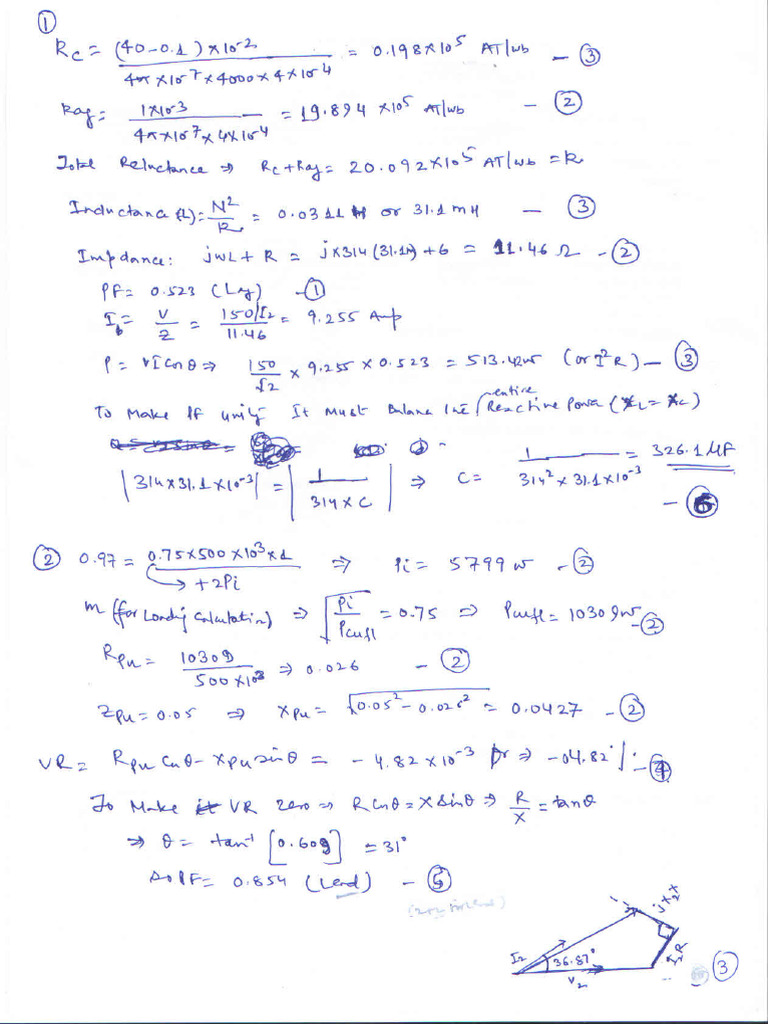 ①
Rc = (40-0.1)×10⁻² / 4π×10⁻⁷×4000×4×10⁻⁴ = 0.198×10⁵ AT/wb — ③
Rag = 1×10⁻³ / 4π×10⁻⁷×4×10⁻⁴ = 19.894×10⁵ AT/wb — ②
Total Reluctance ⇒ Rc+Rag = 20.092×10⁵ AT/wb = R
Inductance (L) = N²/R = 0.0311 H or 31.1 mH — ③
Impdance: jωL + R = j×314(31.1m)+6 = 11.46 Ω — ②
PF = 0.523 (Lag) — ①
I = V/Z = 150/√2 / 11.46 = 9.255 Amp
P = VI cosθ ⇒ 150/√2 × 9.255 × 0.523 = 513.42w (or I²R) — ③
To Make Pf unity It Must Balance the entire Reactive Power (XL = Xc)
|314×31.1×10⁻³| = |1 / 314×C| ⇒ C = 1 / 314²×31.1×10⁻³ = 326.1 μF
— ⑥
② 0.97 = 0.75×500×10³×1 / ↳ +2Pi ⇒ Pi = 5799 w — ②
m (for Loading Calculation) ⇒ √Pi/Pcufl = 0.75 ⇒ Pcufl = 10309w — ②
Rpu = 10309 / 500×10³ ⇒ 0.026 — ②
Zpu = 0.05 ⇒ Xpu = √0.05² - 0.026² = 0.0427 — ②
VR = Rpu cosθ - Xpu sinθ = -4.82×10⁻³ Or ⇒ -04.82% — ④
To Make VR zero ⇒ R cosθ = X sinθ ⇒ R/X = tanθ
⇒ θ = tan⁻¹ [0.609] = 31°
So PF = 0.854 (Lead) — ⑤
I₂ 36.87° V₂ I₂R jX₂I₂ ③